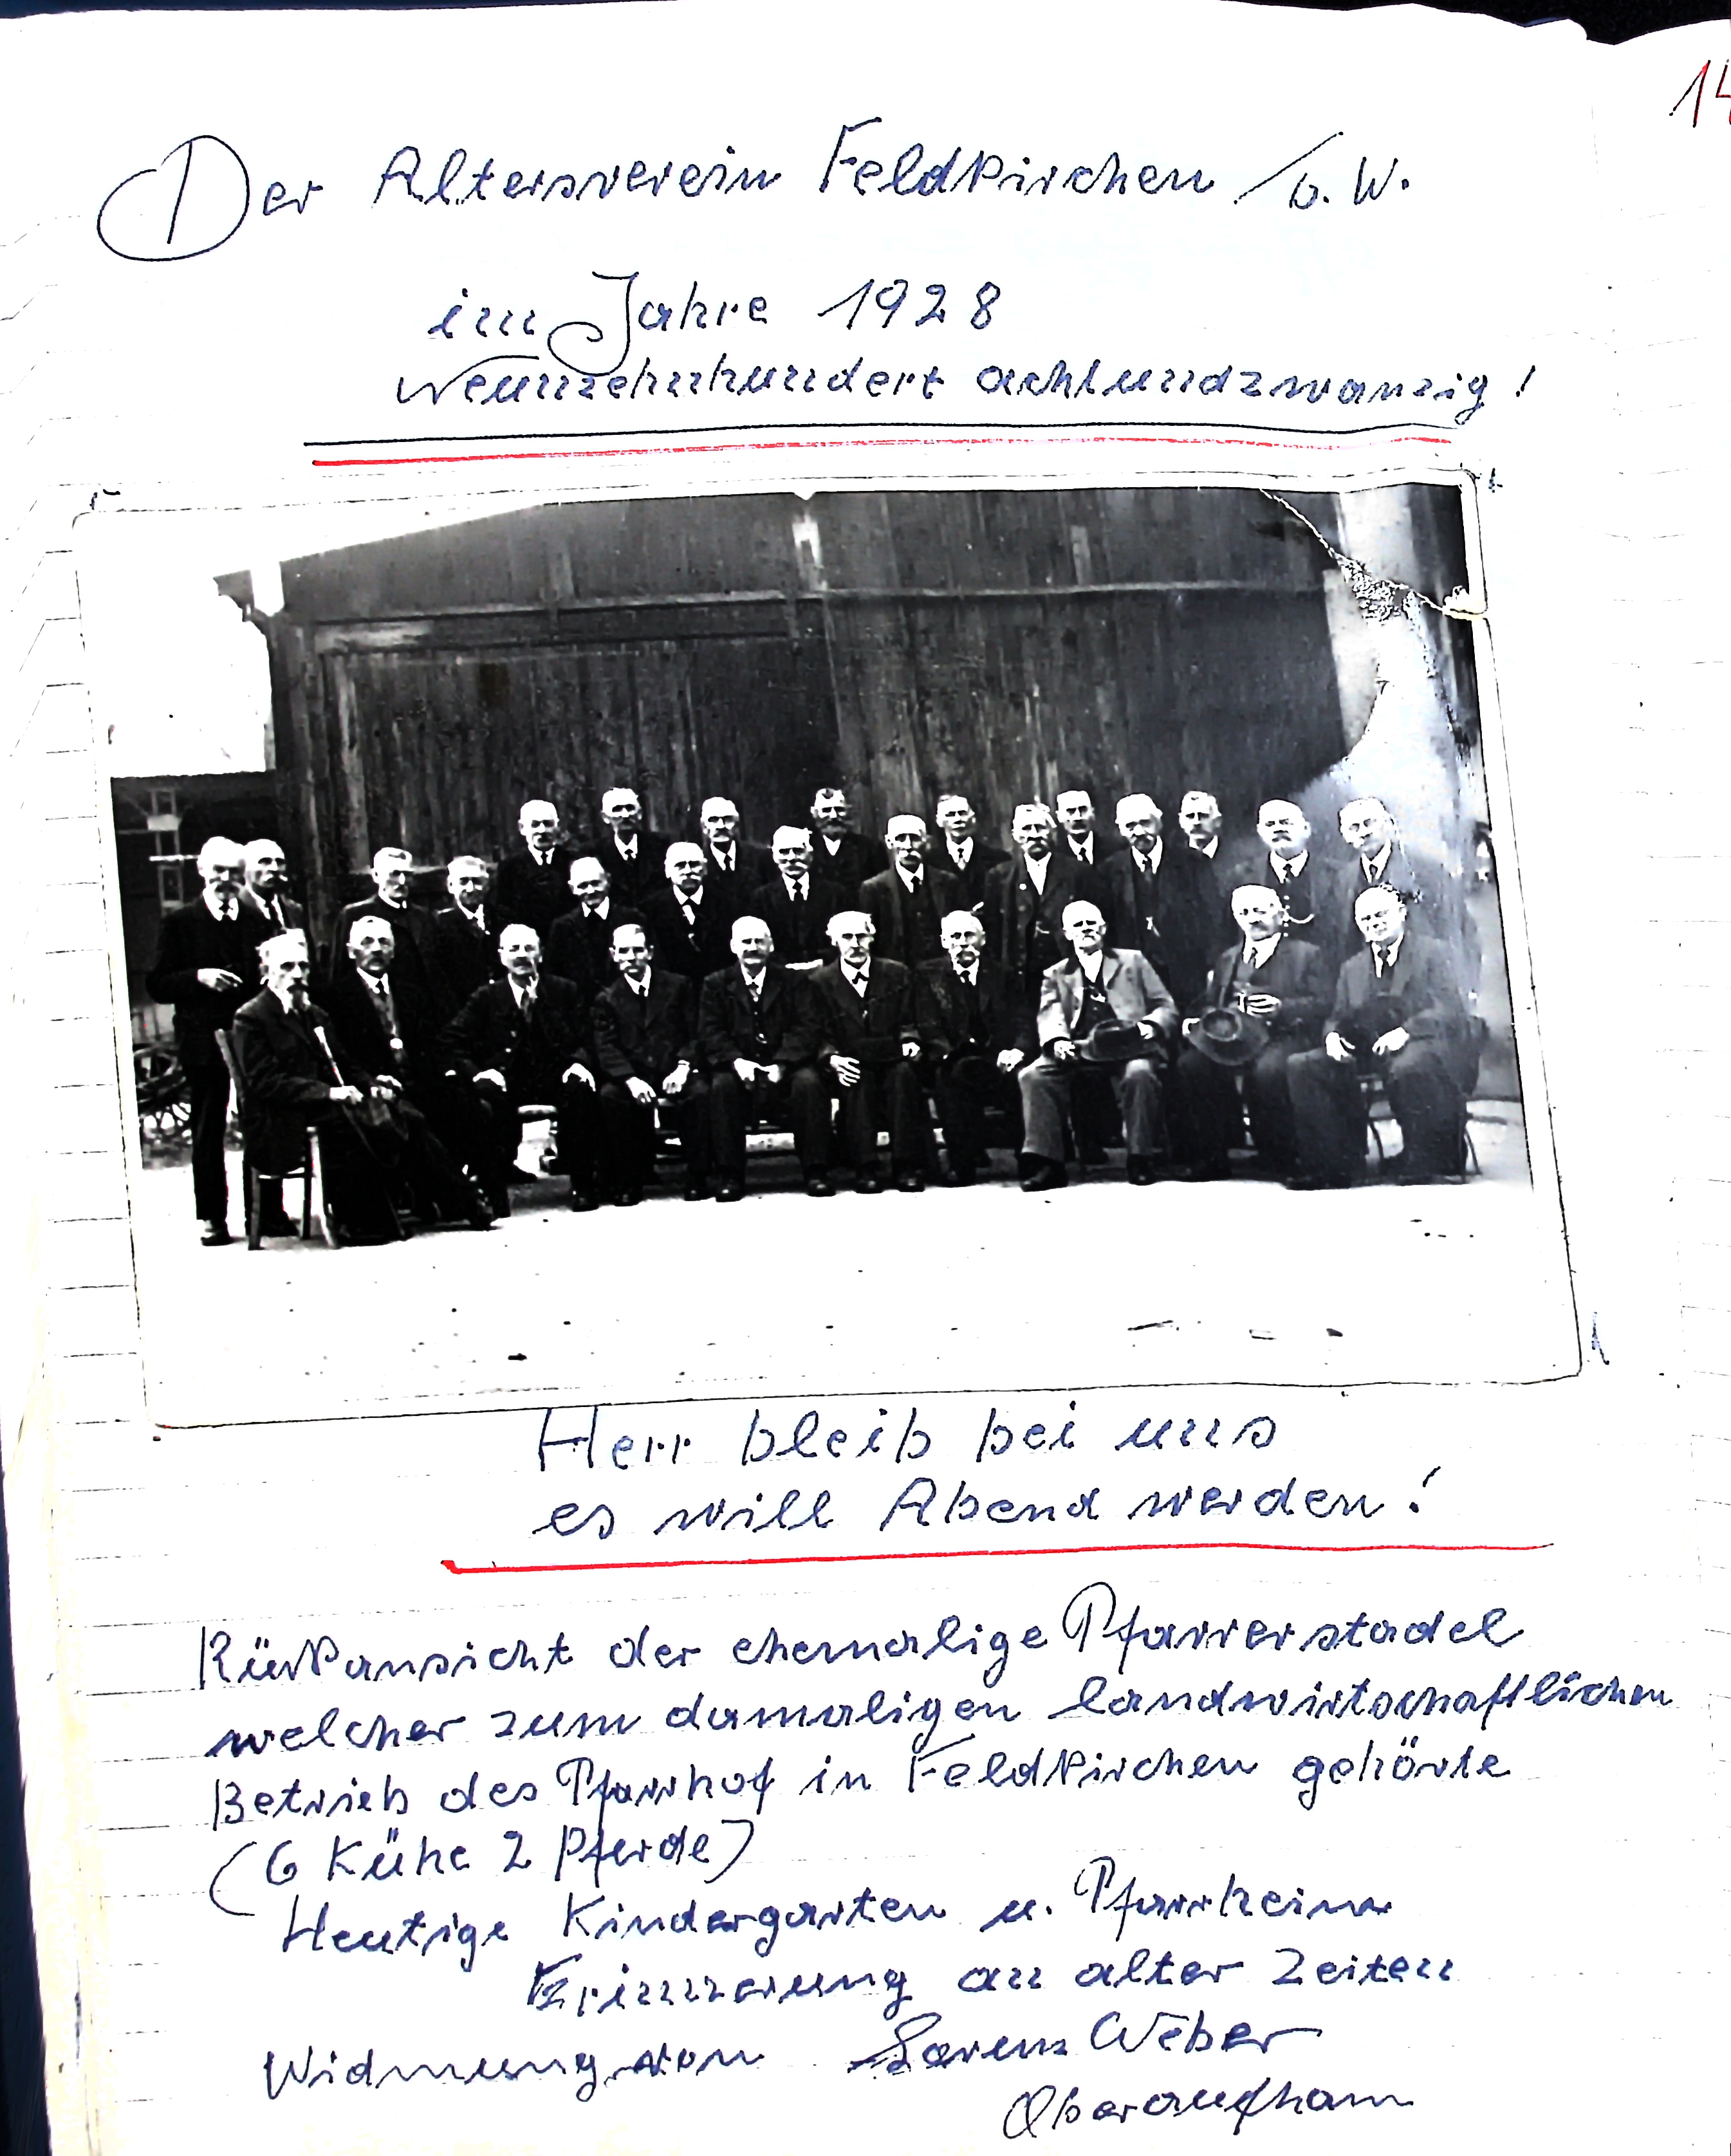 14
Der Altersverein Feldkirchen / b. W.
im Jahre 1928
Neunzehnhundert achtundzwanzig!
Herr bleib bei uns
es will Abend werden!
Rückansicht der ehemalige Pfarrerstadel
welcher zum damaligen landwirtschaftlichen
Betrieb des Pfarrhof in Feldkirchen gehörte
(6 Kühe 2 Pferde)
Heutige Kindergarten u. Pfarrheim
Erinnerung an alter Zeiten
Widmung von Lorenz Weber
Oberaufham